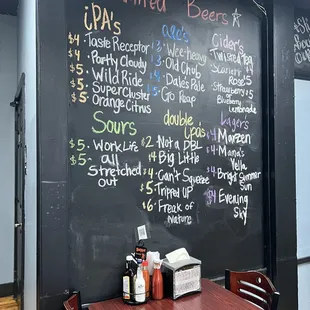 Beers
iPA's
$4 Taste Receptor
$4 Partly Cloudy
$5 Wild Ride
$5 SuperCluster
$5 Orange Citrus
Sours
$5 Work Life
$5 all Stretched out
Wee-heavy
Old Chub
Dale's Pale
Go Reap
double ipa's
$2 Not a DBL
$4 Big Little
$4 Can't Squeeze
$5 Tripped UP
$6 Freak of Nature
Cider's
Twisted Tea
Scarlett Rose
Strawberry or Blueberry Lemonade
Lagers
$4 Marzen
Mama's Yella
$4 Bright Summer Sun
$4 Evening Sky